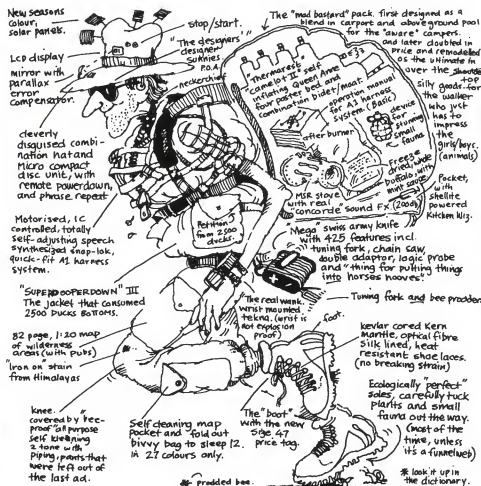 New seasons
Colour,
solar panels.
LCD display
mirror with
parallax
error
compensator.
cleverly
disguised combi-
nation hat and
micro compact
disc unit, with
remote powerdown,
and phrase repeat
Motorised, IC
controlled, totally
self-adjusting speech
synthesized snap-lok,
quick-fit A1 harness
system.
"SUPERDOOPERDOWN" III
The jacket that consumed
2500 DUCKS BOTTOMS.
82 page, 1:20 map
of wilderness
areas (with pubs)
"Iron on" stain
from Himalayas
knee.
covered by bee-
proof all purpose
self kleening
2 tone with
piping, pants that
were left out of
the last ad.
stop/start.
"The designers'
designer"
sunnies
P.O.A.
neckerchief
Petition
from 2500
ducks.
The "mad bastard" pack. first designed as a
blend in carport and aboveground pool
for the "aware" campers.
and later doubled in
price and remodelled
as the ultimate in
over the
top
silly goods for
the walker
who just
has to
impress
the
girls/boys.
(animals)
"Thermarest
camelot II" self
inflating Queen Anne
four poster bed and
combination bidet/moat.
operation manual
for A1 harness
system (Basic)
after burner
device
for
stunning
small
fauna
Freeze
dried whole
buffalo, with
mint sauce
MSR stove
with real
"concorde" sound FX (200db)
Pocket,
with
shellite
powered
Kitchen Whiz.
"Mega" swiss army knife
with 425 features incl.
tuning fork, chain saw,
double adaptor, logic probe
and "thing for putting things
into horses hooves".
Tuning fork and bee prodder
The real wank.
wrist mounted
tekna. (wrist is
not explosion
proof)
foot.
kevlar cored Kern
mantle, optical fibre
silk lined, heat
resistent shoe laces.
(no breaking strain)
Ecologically "perfect"
soles, carefully tuck
plants and small
fauna out the way.
(most of the
time, unless
it's a funnelweb)
Self cleaning map
pocket and fold out
bivvy bag to sleep 12.
in 27 colours only.
The "boot"
with the new
size 47
price tag.
* prodded bee.
* look it up in
the dictionary.